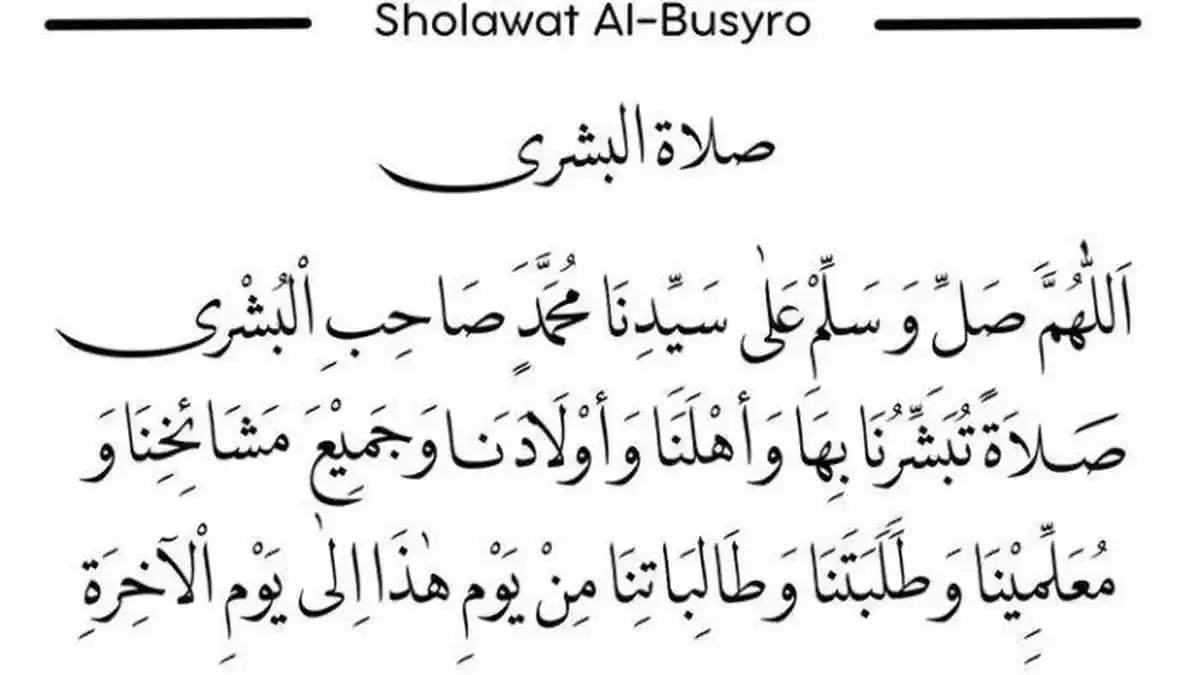 Sholawat Al-Busyro
صلاة البشرى
اَللّٰهُمَّ صَلِّ وَ سَلِّمْ عَلٰى سَيِّدِنَا مُحَمَّدٍ صَاحِبِ الْبُشْرٰى
صَلاَةً تُبَشِّرُنَا بِهَا وَأَهْلَنَا وَأَوْلَادَنَا وَجَمِيْعَ مَشَائِخِنَا وَ
مُعَلِّمِيْنَا وَ طَلَبَتَنَا وَ طَالِبَاتِنَا مِنْ يَوْمِ هٰذَا اِلٰى يَوْمِ الْآخِرَةِ